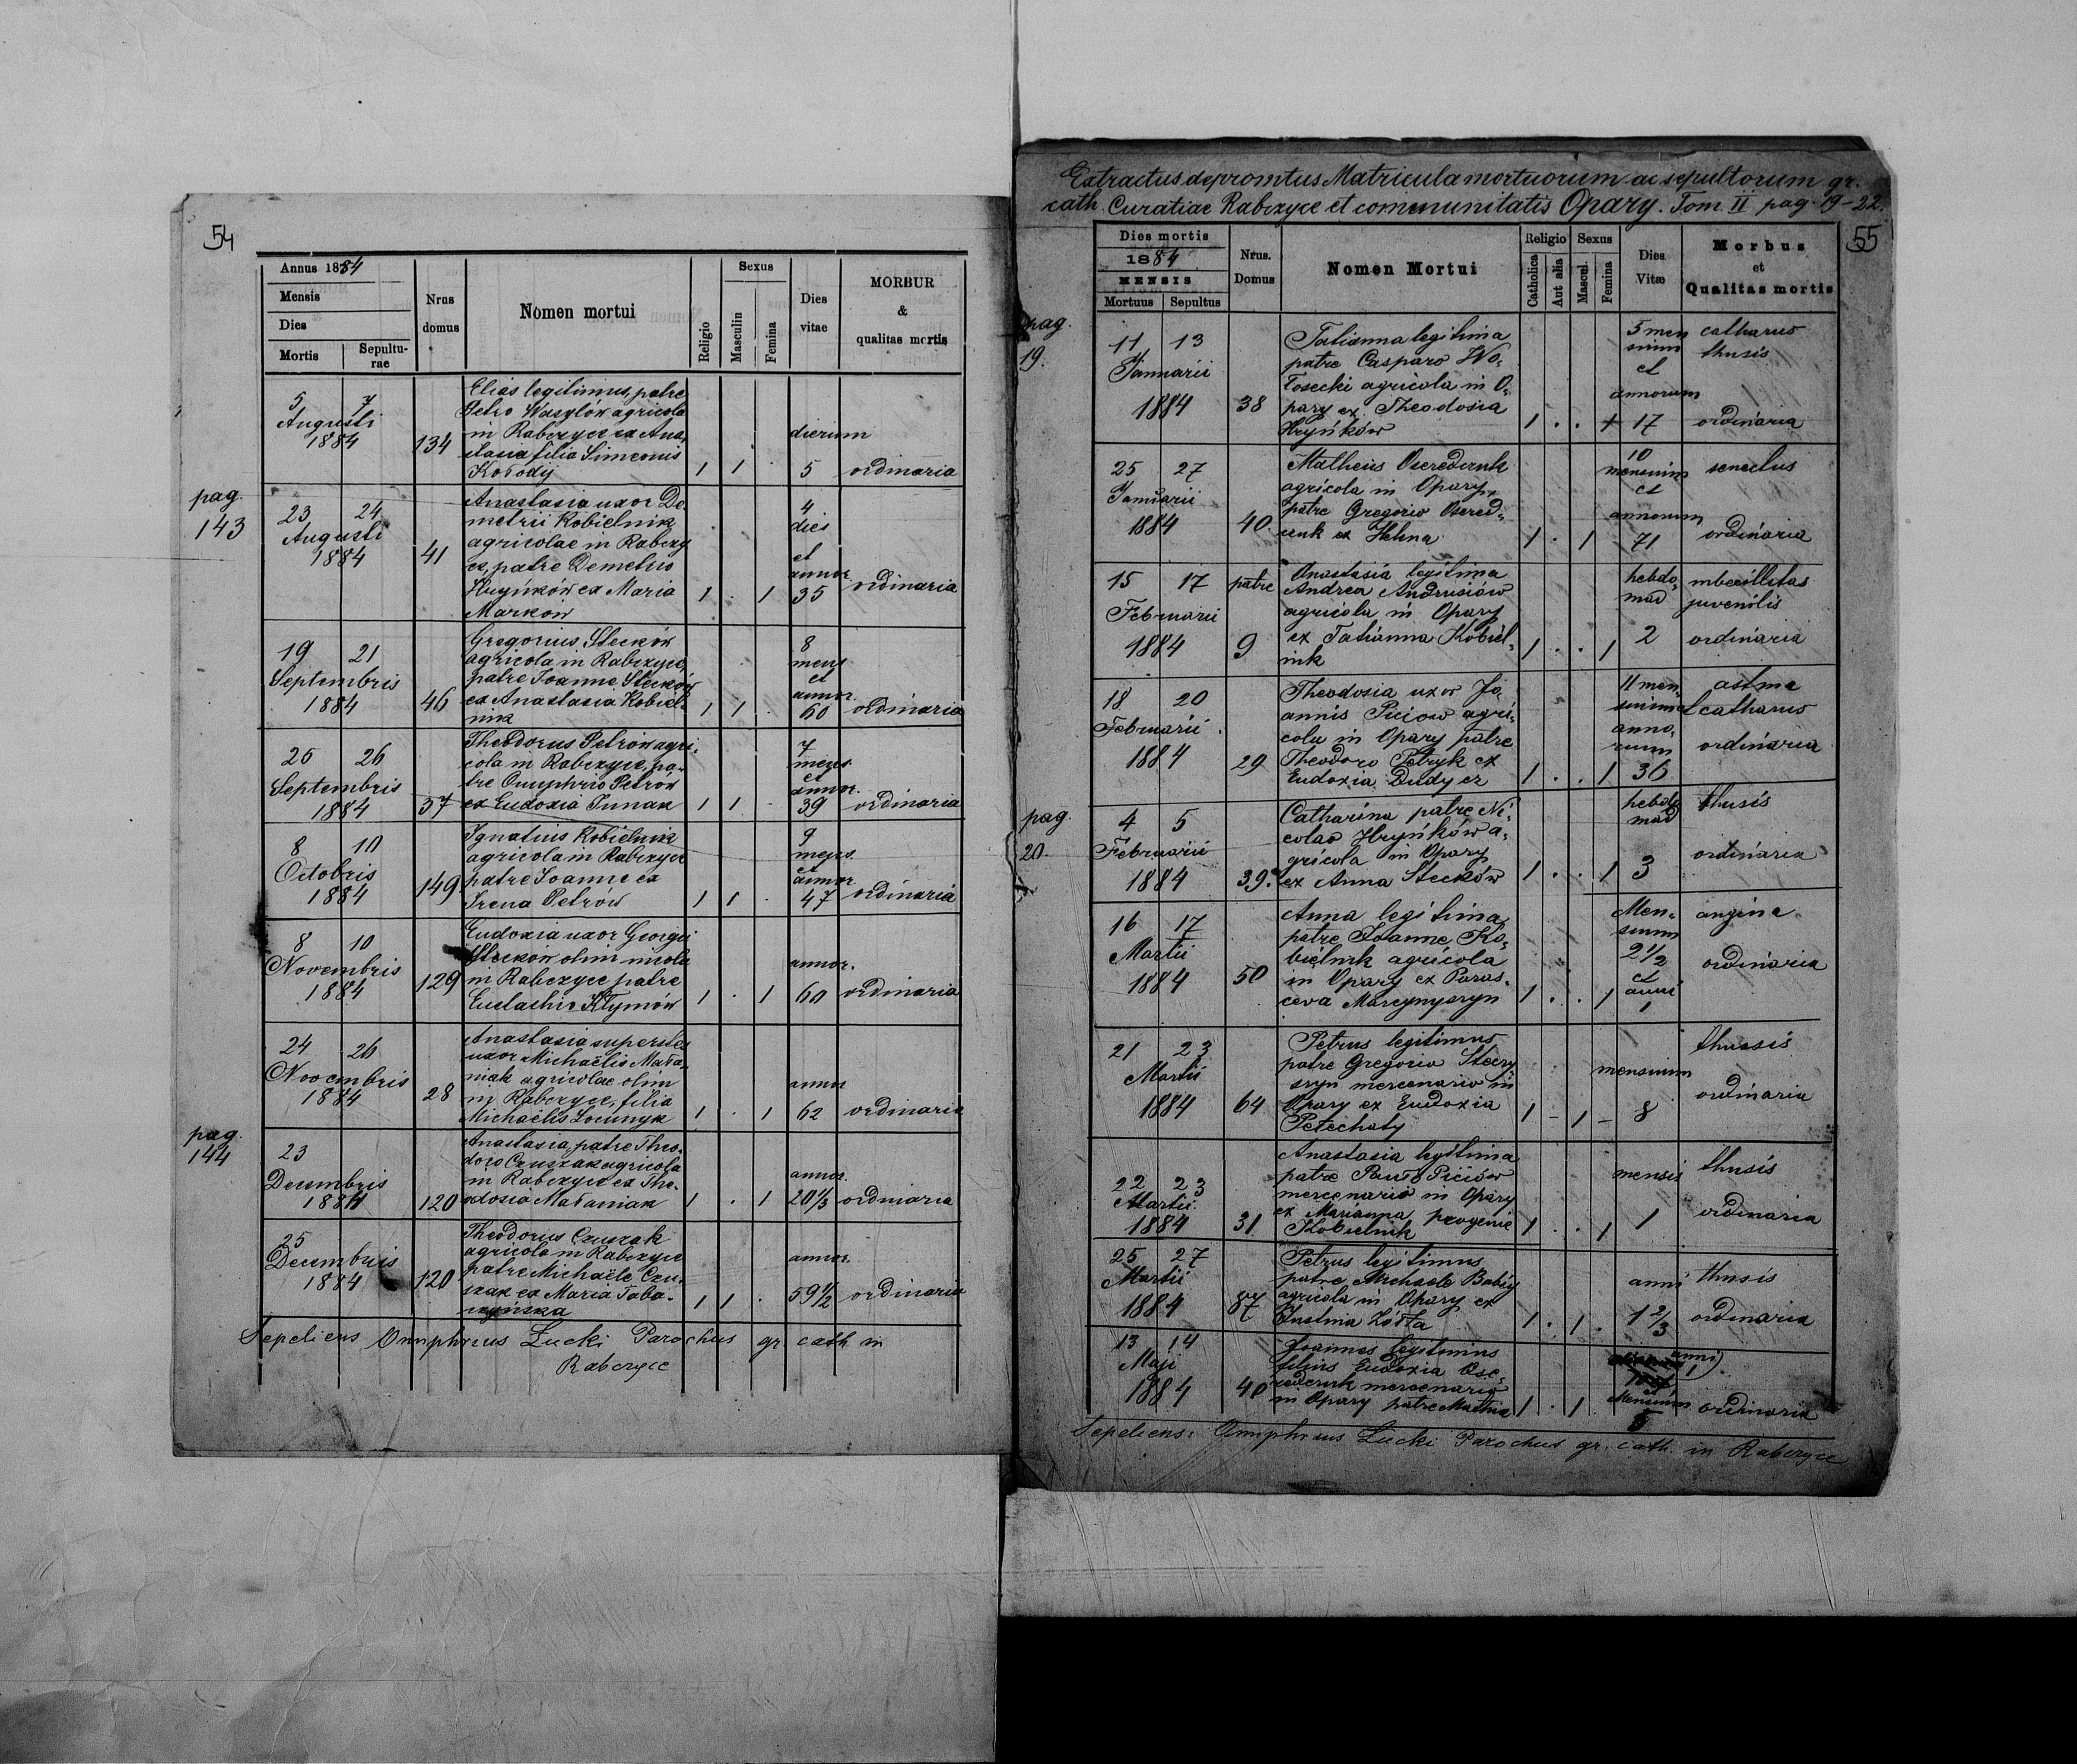 54
Annus 1884
Mensis
Dies
Mortis
Sepultu-
rae
Nrus
domus
Nomen mortui
Religio
Sexus
Masculin
Femina
Dies
vitae
MORBUR
&
qualitas mortis
5 7
Augusti
1884
134
Elias legitimus, patre
Petro Wasylów agricola
in Rabczyce ex Ana,
stasia filia Simeonis
Kołodij
1 1 .
dierum
5
ordinaria
pag.
143
23 24
Augusti
1884
41
Anastasia uxor De,
metrii Kobielnik
agricolae in Rabczy
ce, patre Demetrio
Hryńków ex Maria
Marków
1 . 1
4
dies
et
annor.
35
ordinaria
19 21
Septembris
1884
46
Gregorius Steców
agricola in Rabczyce,
patre Joanne Steców
ex Anastasia Kobiel-
nik
1 1 .
8
mens
et
annor.
60
ordinaria
25 26
Septembris
1884
57
Theodorus Petrów agri,
cola in Rabczyce, pa-
tre Onuphrio Petrów
ex Eudoxia Junak
1 1 -
7
mens
et
annor.
39
ordinaria
8 10
Octobris
1884
149
Ignatius Kobielnik
agricola in Rabczyce
patre Joanne ex
Irena Petrów
1 1 .
9
mens.
et
annor
47
ordinaria
8 10
Novembris
1884
129
Eudoxia uxor Georgii
Steców olim incola
in Rabczyce patre
Eustachio Kłymów
1 . 1
annor.
60
ordinaria
24 26
Novembris
1884
28
Anastasia superstes
uxor Michaëlis Mała,
niak agricolae olim
in Rabczyce, filia
Michaëlis
1 . 1
annor
62
ordinaria
pag.
144
23
Decembris
1884
120
Anastasia, patre Theo-
doro Czuszak agricola
in Rabczyce ex The-
odosia Małaniak
1 . 1
annor.
20 1/3
ordinaria
25
Decembris
1884
120
Theodorus Czuszak
agricola in Rabczyce
patre Michaële Czu-
szak ex Maria Taba-
czyńska
1 1 .
annor.
59 1/2
ordinaria
Sepeliens Onuphrius Łucki Parochus gr. cath in
Rabczyce
Extractus depromtus Matricula mortuorum ac sepultorum gr.
cath. Curatiae Rabczyce et communitatis Opary. Tom. II pag. 19-22.
55
Dies mortis
1884
MENSIS
Mortuus
Sepultus
Nrus.
Domus
Nomen Mortui
Religio
Catholica
Aut alia
Sexus
Mascul.
Femina
Dies
Vitæ
Morbus
et
Qualitas mortis
pag.
19.
11 13
Januarii
1884
38
Tatianna legitima
patre Casparo Wo-
łosecki agricola in O-
pary ex Theodosia
Hryńków
1 . . 1
5 men
sium
et
annorum
17
catharus
thusis
ordinaria
25 27
Januarii
1884
40.
Matheus Oseredczuk
agricola in Opary,
patre Gregorio Osered-
czuk ex Helena
1 . 1
10
mensium
et
annorum
71
senectus
ordinaria
15 17
Februarii
1884
9
patre
Anastasia legitima
Andrea Andrusiów
agricola in Opary
ex Tatianna Kobiel-
nik
1 . . 1
hebdo-
mad
2
mbecillitas
juvenilis
ordinaria
18 20
Februarii
1884
29
Theodosia uxor Jo,
annis Piciow agri-
cola in Opary patre
Theodoro Petryk ex
Eudoxia Dudycz
1 . . 1
11 men
sium et
anno,
rum
36
astma
catharus
ordinaria
pag.
20.
4 5
Februarii
1884
39.
Catharina patre Ni-
colao Hryńków a-
gricola in Opary
ex Anna Steców
1 . . 1
hebdo
mad
3
thusis
ordinaria
16 17
Martii
1884
50
Anna legitima
patre Joanne Ko-
bielnik agricola
in Opary ex Paras-
ceva Marcynyszyn
1 . . 1
Men-
sium
2 1/2
et
anni
1
angina
ordinaria
21 23
Martii
1884
64
Petrus legitimus
patre Gregorio Steczy-
szyn mercenario in
Opary ex Eudoxia
Pełechaty
1 - 1 -
mensium
8
thussis
ordinaria
22 23
Martii
1884
31
Anastasia legitima
patre Pauło Piciów
mercenario in Opary
ex Marianna progenie
Kobielnik
1 . . 1
mensis
1
thusis
ordinaria
25 27
Martii
1884
87
Petrus legitimus
patre Michaele Babij
agricola in Opary ex
Justina Żółta
1 . 1 .
anni
1 2/3
thusis
ordinaria
13 14
Maji
1884
40
Joannes legitimus
filius Eudoxia Ose-
redczuk mercenario
in Opary patre
1 . 1
anni
1
Mensium
5
ordinaria
Sepeliens: Onuphrius Łucki Parochus gr. cath. in Rabczyce